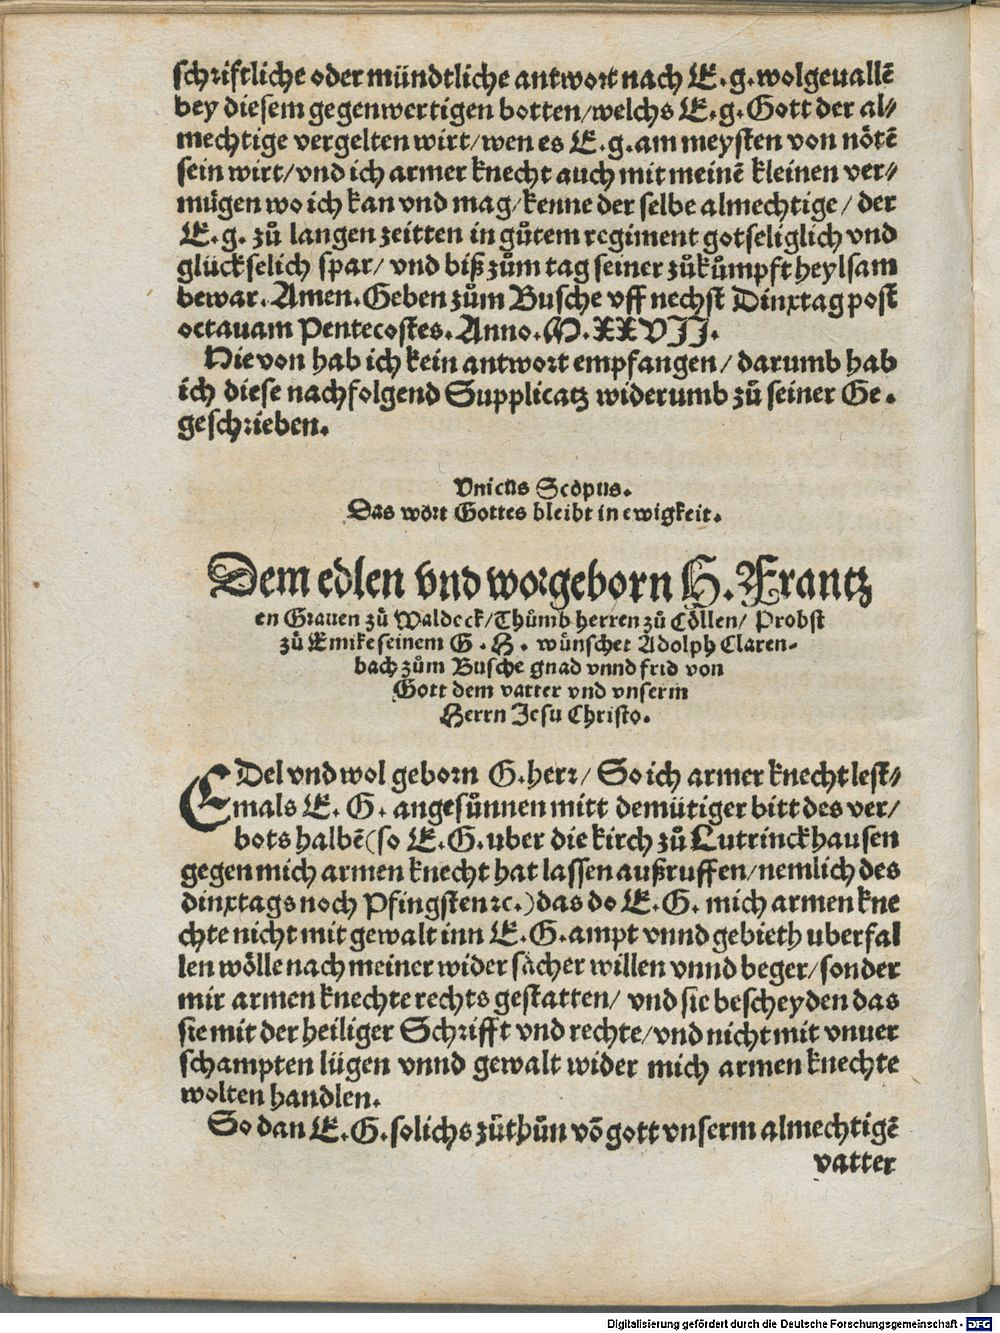 schriftliche oder mündtliche antwort nach E.g.wolgeuallē
bey diesem gegenwertigen botten/welchs E.g.Gott der al⸗
mechtige vergelten wirt/wen es E.g.am meysten von nötē
sein wirt/vnd ich armer knecht auch mit meinē kleinen ver⸗
mügen wo ich kan vnd mag/kenne der selbe almechtige/ der
E.g. zů langen zeitten in gůtem regiment gotseliglich vnd
glückselich spar/ vnd biß zům tag seiner zůkůmpft heylsam
bewar. Amen. Geben zům Busche vff nechst Dinxtag post
octauam Pentecostes. Anno. M.XXVII.
Hievon hab ich kein antwort empfangen/ darumb hab
ich diese nachfolgend Supplicatz widerumb zů seiner Ge.
geschrieben.
Vnicus Scopus.
Das wort Gottes bleibt in ewigkeit.
Dem edlen vnd worgeborn H. Frantz
en Grauen zů Waldeck/Thůmb herren zů Cöllen/ Probst
zů Emike seinem G. H. wünschet Adolph Claren-
bach zům Busche gnad vnnd frid von
Gott dem vatter vnd vnserm
Herrn Jesu Christo.
EDel vnd wol geborn G.herr/ So ich armer knecht lest⸗
mals E. G. angesůnnen mitt demütiger bitt des ver/
bots halbē(so E.G.uber die kirch zů Lutrinckhausen
gegen mich armen knecht hat lassen außruffen/nemlich des
dinxtags noch Pfingsten ꝛc.)das do E.G. mich armen kne
chte nicht mit gewalt inn E.G.ampt vnnd gebieth uberfal
len wölle nach meiner wider sächer willen vnnd beger/sonder
mir armen knechte rechts gestatten/ vnd sie bescheyden das
sie mit der heiliger Schrifft vnd rechte/vnd nicht mit vnuer
schampten lügen vnnd gewalt wider mich armen knechte
wolten handlen.
So dan E.G.solichs zůthůn vō gott vnserm almechtigē
vatter
Digitalisierung gefördert durch die Deutsche Forschungsgemeinschaft - DFG